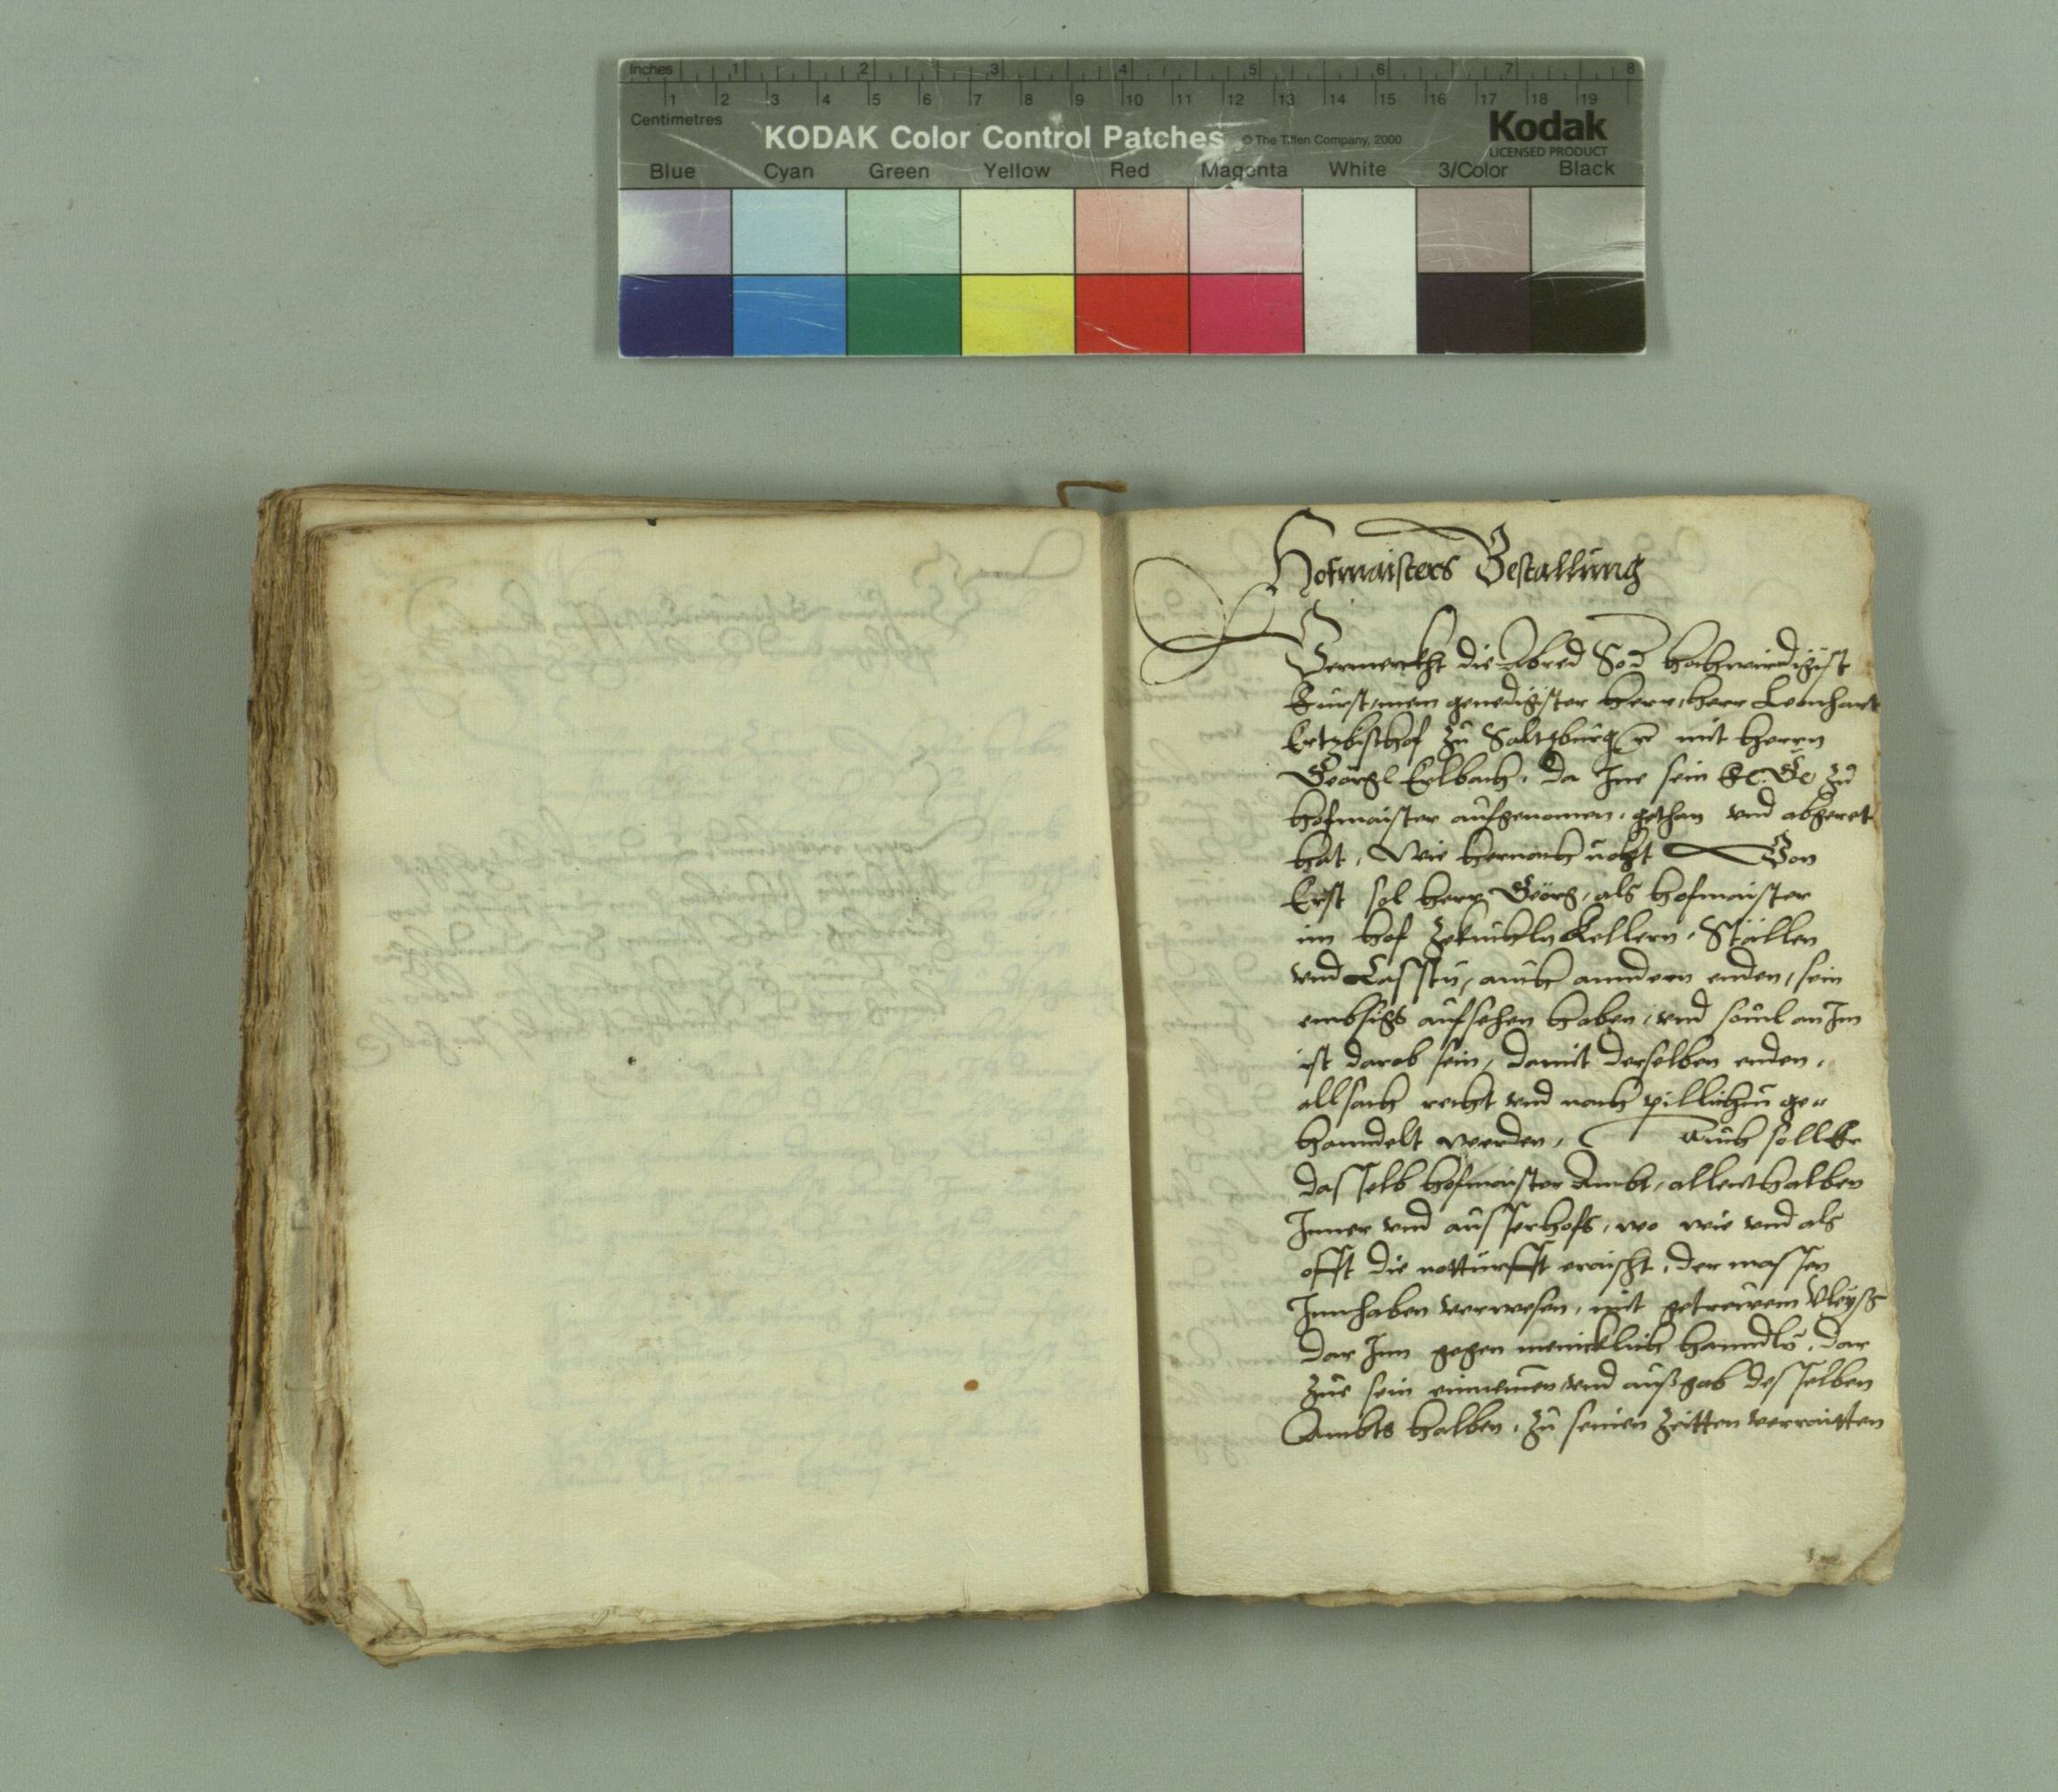 Inches 1 2 3 4 5 6 7 8
1 2 3 4 5 6 7 8 9 10 11 12 13 14 15 16 17 18 19
Centimetres
KODAK Color Control Patches © The Tiffen Company, 2000 Kodak
LICENSED PRODUCT
Blue Cyan Green Yellow Red Magenta White 3/Color Black
Hofmaisters Bestallung
Vermerckht die Abred So d hochwirdigist
Fürst, mein genedigister herr, herr Leonhart
Ertzbischof zu Saltzburg mit herrn
Geörgl da Ine sein F. G. zu
hofmaister aufgenomen, gethan vnd abgeret
hat, Wie hernach uolgt Von
Erst sol herr Geörg, als hofmaister
im hof Kellern, Ställen
vnd Cassten, auch anndern enden, sein
embsigs aufsehen haben, vnd souil an Im
ist darob sein, damit derselben enden,
allsach recht vnd nach pillichen ge"
hanndelt werden, Auch soll Er
dasselb hofmaister Ambt, allenthalben
Inner vnd ausserhofs, wo wie vnd als
offt die notturfft eraischt, der massen
Innhaben verwesen, mit getrewem vleyss
dar Inn gegen menicklich hanndln, dar
zue sein einnemen vnd aussgab desselben
Ambts halben, zu seinen Zeitten verraitten